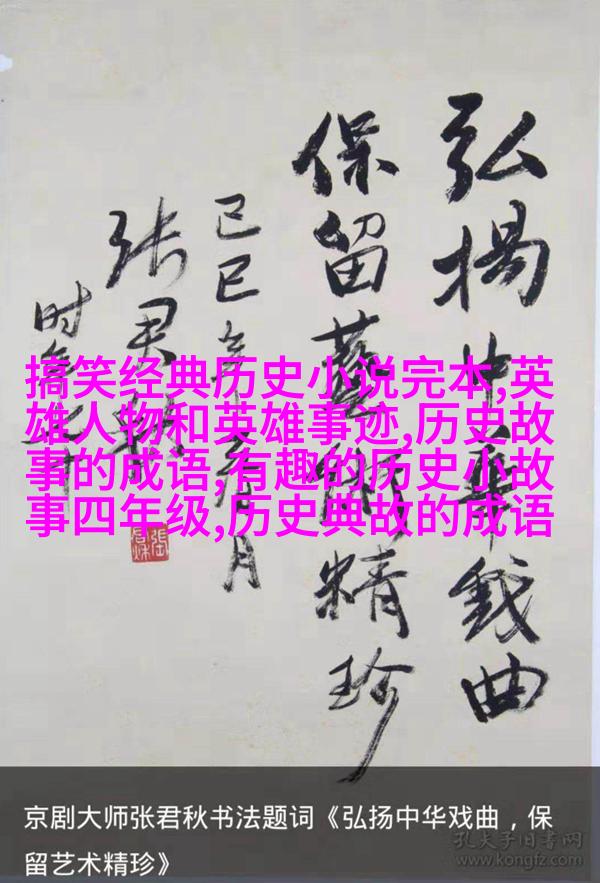 弘揚中華戲曲
保留藝術精珍
己巳
月
张君秋
时年
搞笑经典历史小说完本,英
雄人物和英雄事迹,历史故
事的成语,有趣的历史小故
事四年级,历史典故的成语
京剧大师张君秋书法题词《弘扬中华戏曲，保
留艺术精珍》
孔夫子旧书网
www.kongfz.com